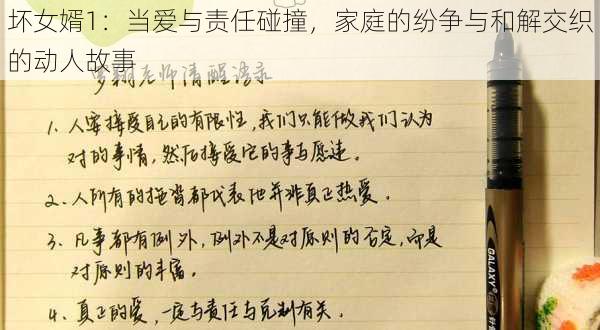 坏女婿1：当爱与责任碰撞，家庭的纷争与和解交织
的动人故事
罗翔老师清醒语录
1. 人要接受自己的有限性，我们只能做我们认为
对的事情，然后接受它的事与愿违。
2. 人所有的拖背都代表他并非真正热爱。
3. 凡事都有例外，例外不是对原则的否定，而是
对原则的丰富。
4. 真正的爱，一定与责任与克制有关。
GALAXY